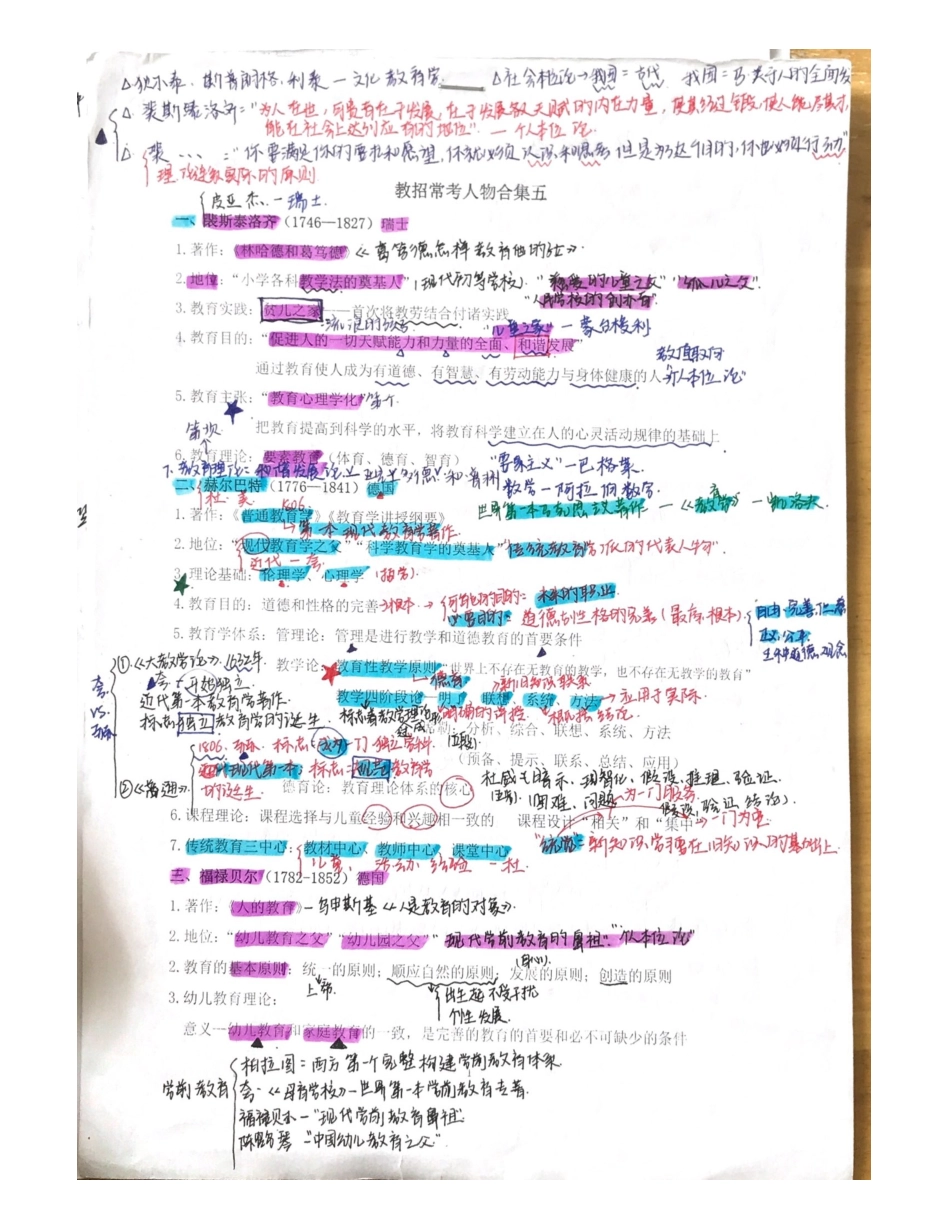 △狄尔泰、斯普朗格、利泰 — 文化教育学
△社会本位论→我国=古代
△ 裴斯泰洛齐="为人在世，可贵者在于发展，在于发展各人天赋的内在力量，使其经过锻炼，使人能尽其才，
能在社会上达到应有的地位". — 个人本位论.
△ 裴 … :"你要满足你的要求和愿望，你就必须认识和思考，但是为了达个目的，你也必须行动"
理论连系实际的原则
教招常考人物合集五
皮亚杰、—瑞士.
一、裴斯泰洛齐（1746—1827）瑞士
1.著作：《林哈德和葛笃德》《葛笃德怎样教育他的子女》
2.地位：“小学各科教学法的奠基人”（现代初等学校）.“慈爱的儿童之父”“孤儿之父”
“人民学校的创办者”
3.教育实践：贫儿之家——首次将教劳结合付诸实践
“儿童之家”—蒙台梭利
4.教育目的：“促进人的一切天赋能力和力量的全面、和谐发展”
教育取向
通过教育使人成为有道德、有智慧、有劳动能力与身体健康的人 “个人本位论”
5.教育主张：“教育心理学化”第一个
把教育提高到科学的水平，将教育科学建立在人的心灵活动规律的基础上
首次
6.教育理论：要素教育（体育、德育、智育） “要素主义”—巴格莱.
7.教育理论：和谐发展论
数学—阿拉伯数字.
二、赫尔巴特（1776—1841）德国
杜.美.
1806.
1.著作：《普通教育学》《教育学讲授纲要》
世界第一本马克思主义著作 —《教育》— 凯洛夫
→第一本现代教育学著作.
2.地位：“现代教育学之父”“科学教育学的奠基人”“传统教育学派的代表人物”.
近代—夸.
3.理论基础：伦理学、心理学（哲学）
4.教育目的：道德和性格的完善→根本→ 可能的目的=未来的职业
必要目的=道德与性格的完善（最高、根本）
自由、完善、仁慈
正义、公平
五种道德观念
5.教育学体系：管理论：管理是进行教学和道德教育的首要条件
①《大教学论》.1632年. 教学论：教育性教学原则“世界上不存在无教育的教学，也不存在无教学的教育”
夸 vs. 赫
夸：开始独立.
德育
→新旧知识联系
近代第一本教育学著作.
教学四阶段论—明了、联想、系统、方法→应用于实际.
标志独立教育学的诞生.
标志着教学理论形成
勒：分析、综合、联想、系统、方法
1806、赫、标志成为一门独立学科.
（五段）
（预备、提示、联系、总结、应用）
现代第一本，标志=规范教育学
②《普通》
的诞生.
德育论：教育理论体系的核心
杜威=暗示、理智化、假设、推理、验证.
（五步）（困难、问题、假设、验证、结论）.
一门服务.
6.课程理论：课程选择与儿童经验和兴趣相一致的 课程设计“相关”和“集中”→一门为中
7.传统教育三中心：教材中心、教师中心、课堂中心
“统觉”=新知识学习要在旧知识的基础上.
儿童、活动、经验 —杜.
三、福禄贝尔（1782-1852）德国
1.著作：《人的教育》—乌申斯基《人是教育的对象》.
2.地位：“幼儿教育之父”“幼儿园之父”“现代学前教育的鼻祖”.“个人本位论”
2.教育的基本原则：统一的原则；顺应自然的原则；发展的原则；创造的原则
上帝.
出生起不受干扰
个性发展.
3.幼儿教育理论：
意义—幼儿教育和家庭教育的一致，是完善的教育的首要和必不可缺少的条件
学前教育
柏拉图=西方第一个完整构建学前教育体系
夸—《母育学校》—世界第一本学前教育专著.
福禄贝尔—“现代学前教育鼻祖”
陈鹤琴 “中国幼儿教育之父”.